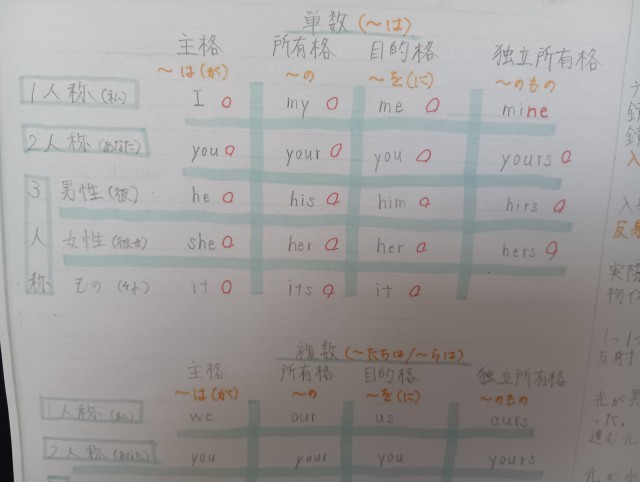 単数(〜は)
主格 所有格 目的格 独立所有格
〜は(が) 〜の 〜を(に) 〜のもの
1人称(私) I my me mine
2人称(あなた) you your you yours
3人称
男性(彼) he his him hirs
女性(彼女) she her her hers
もの(それ) it its it
複数(〜たちは/〜らは)
主格 所有格 目的格 独立所有格
〜は(が) 〜の 〜を(に) 〜のもの
1人称 we our us ours
2人称 you your you yours
実際
反射